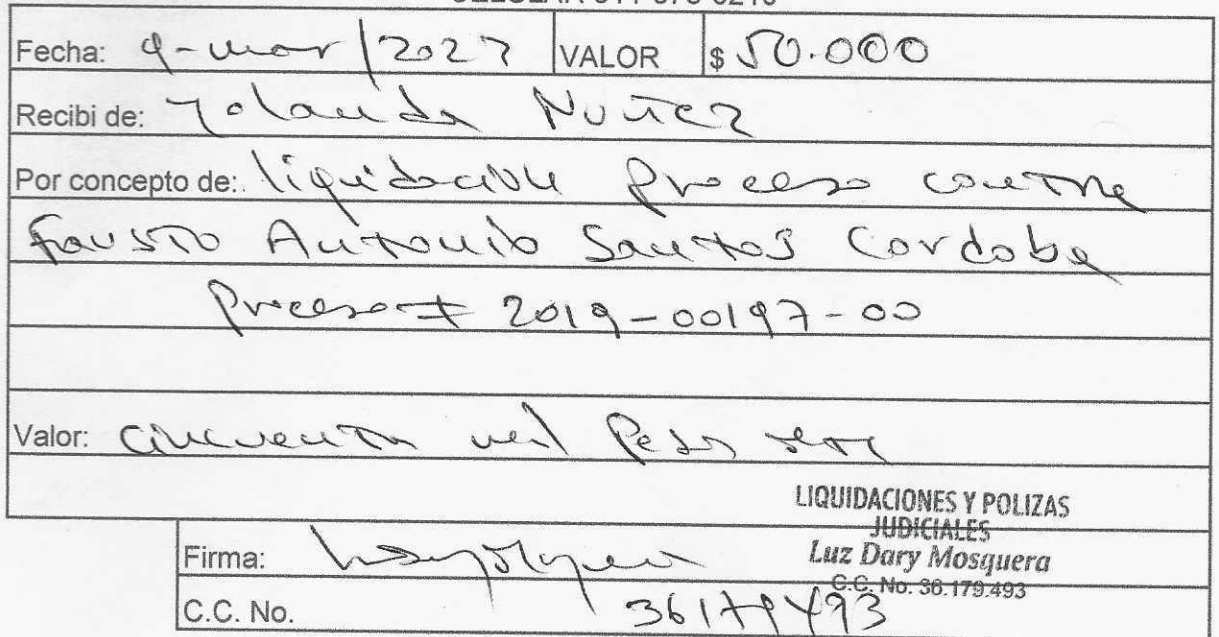 Fecha: 9-mar/2027 VALOR $ 50.000
Recibi de: Yolanda Nuñez
Por concepto de: liquidacion proceso contra
Fausto Antonio Santos Cordoba
Proceso # 2019-00197-00
Valor: Cincuenta mil Pesos mte
LIQUIDACIONES Y POLIZAS
JUDICIALES
Luz Dary Mosquera
C.C. No. 36.179.493
Firma:
C.C. No. 36179493